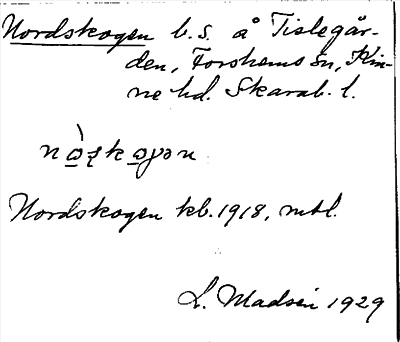 Nordskogen b.s. å Tislegår-
den, Forshems sn, Kin-
ne hd. Skarab. l.
Nordskogen kb. 1918, mtl.
L. Madsén 1929